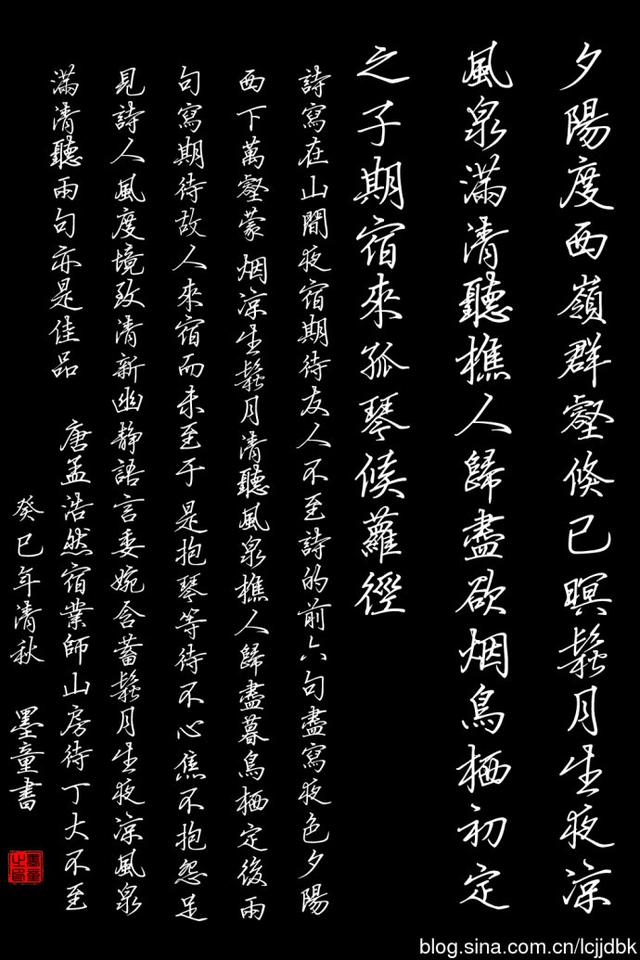 夕陽度西嶺群壑倏已暝鬆月生夜凉
風泉滿清聽樵人歸盡欲烟鳥栖初定
之子期宿來孤琴候蘿徑
詩寫在山間夜宿期待友人不至詩的前六句盡寫夜色夕陽
西下萬壑蒙烟凉生鬆月清聽風泉樵人歸盡暮鳥栖定後兩
句寫期待故人來宿而未至于是抱琴等待不心焦不抱怨足
見詩人風度境致清新幽静語言委婉含蓄鬆月生夜凉風泉
滿清聽兩句亦是佳品
唐孟浩然宿業師山房待丁大不至
癸巳年清秋 墨童書
blog.sina.com.cn/lcjjdbk